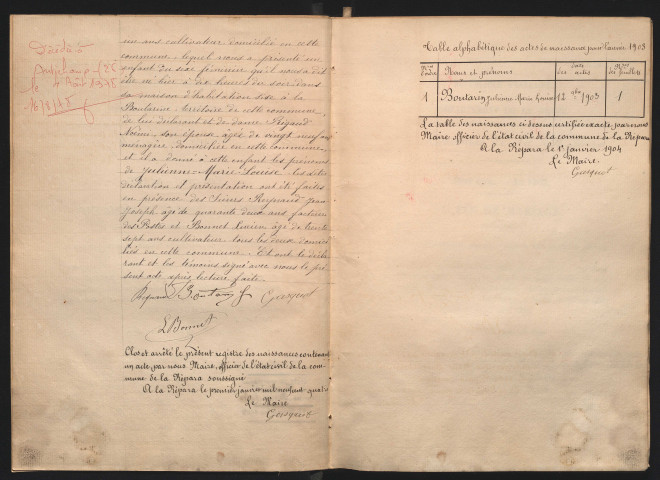 Décédée à
le
un ans cultivateur domicilié en cette
commune lequel nous a présenté un
enfant du sexe féminin qu'il nous a dit
être né hier à dix heures du soir dans
sa maison d'habitation sise à la
Boutarine territoire de cette commune,
de lui déclarant et de dame Rigaud
Noémi son épouse âgée de vingt neuf ans
ménagère domiciliée en cette commune
et il a donné à cette enfant les prénoms
de Julienne-Marie-Louise les dites
déclaration et présentation ont été faites
en présence des Sieurs Reynaud Jean
Joseph âgé de quarante deux ans facteur
des Postes et Bonnet Lucien âgé de trente
sept ans cultivateur tous les deux domici
liés en cette commune. Et ont le décla
rant et les témoins signé avec nous le pré
sent acte après lecture faite.
L Bonnet
Clos et arrêté le présent registre des naissances contenant
un acte par nous Maire, officier de l'état civil de la com-
mune de la Répara soussigné
A la Répara le premier janvier mil neuf cent quatre
Le Maire
Table alphabétique des actes de naissances pour l'année 1903
Nos d'ordre Noms et prénoms Date des actes Nos des feuillets
1 Boutarin Julienne Marie Louise 12 9bre 1903 1
La table des naissances ci dessus certifiée exacte, par nous
Maire officier de l'état civil de la commune de la Répara
A la Répara le 1er janvier 1904
Le Maire.